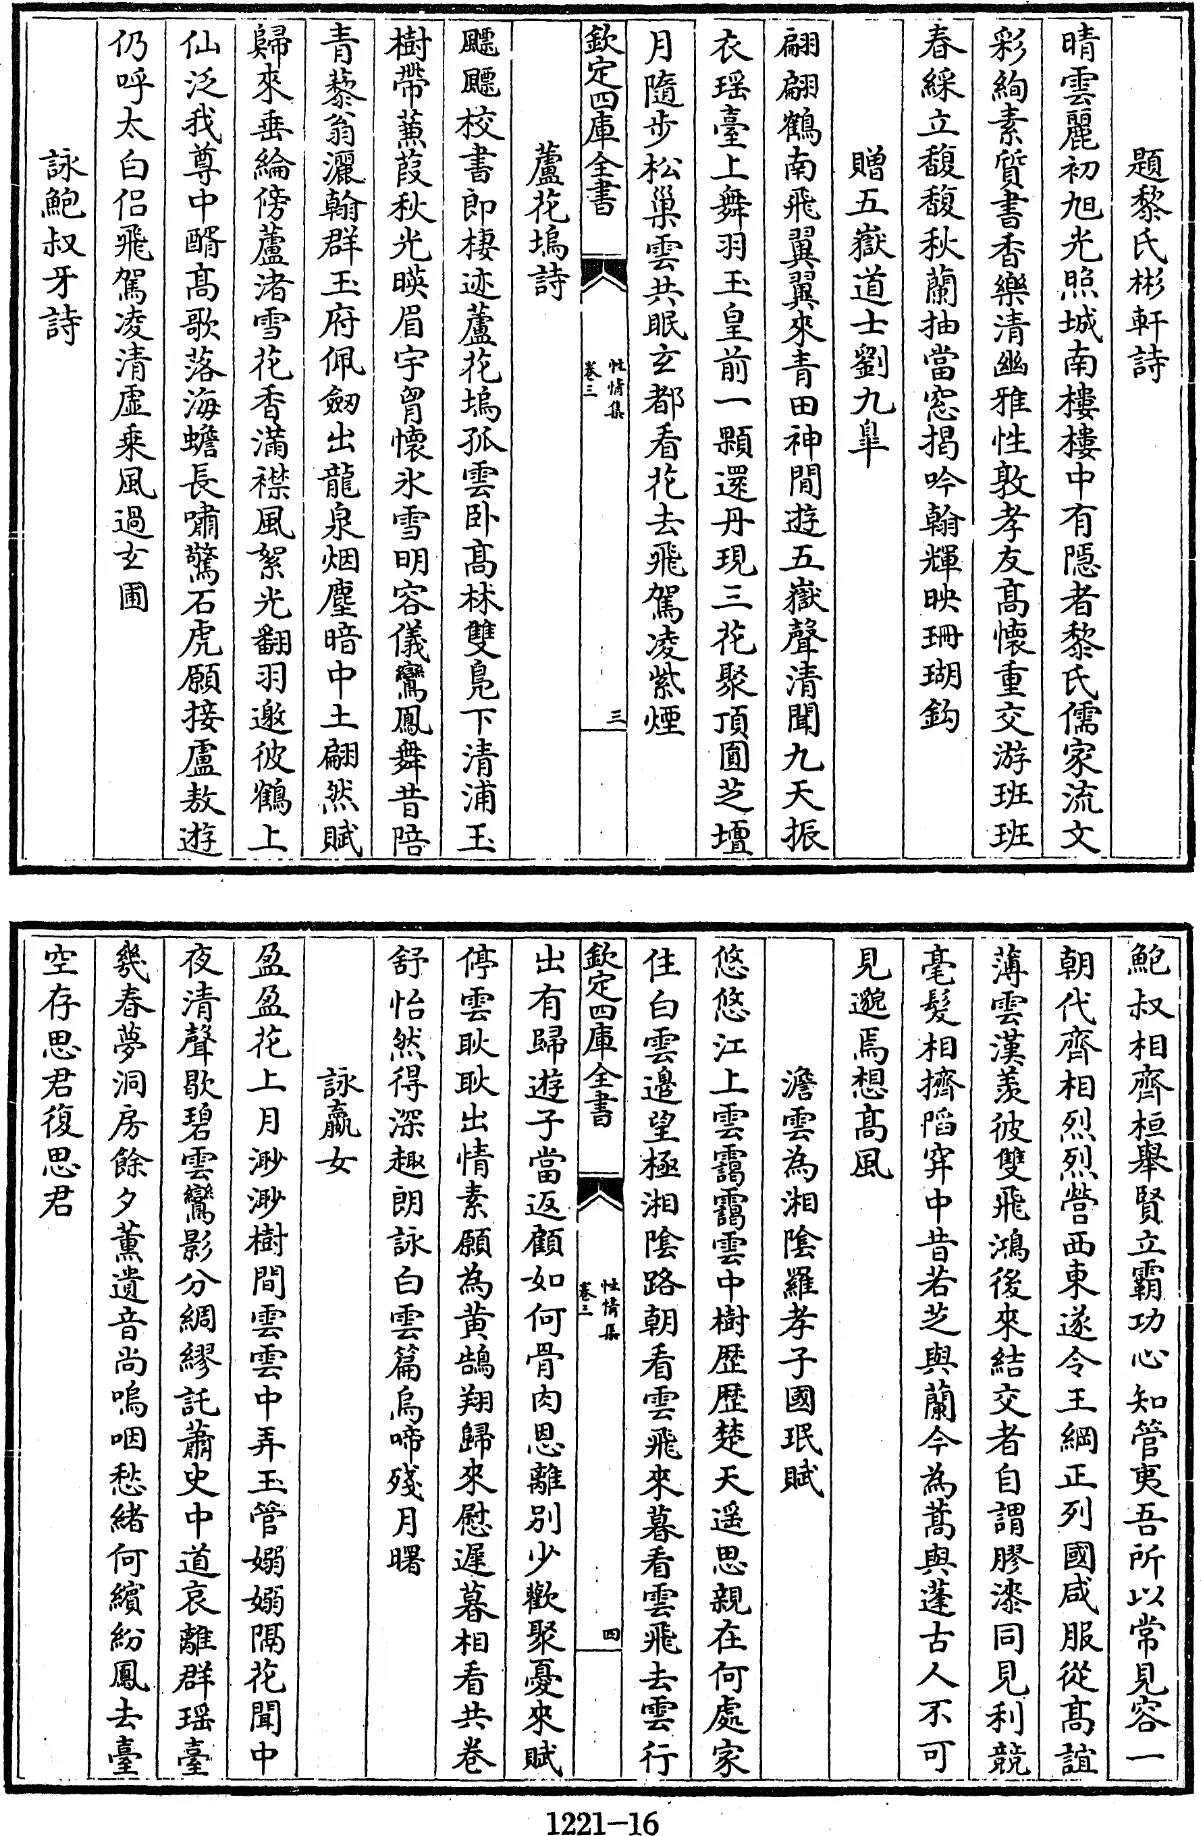 題黎氏彬軒詩
晴雲麗初旭光照城南樓樓中有隱者黎氏儒家流文
彩絢素質書香樂清幽雅性敦孝友髙懷重交游班班
春綵立馥馥秋蘭抽當窓揭吟翰輝映珊瑚鈎
贈五嶽道士劉九臯
翩翩鶴南飛翼翼來青田神閒遊五嶽聲清聞九天振
衣瑶臺上舞羽玉皇前一顆還丹現三花聚頂圓芝壇
月隨步松巢雲共眠玄都看花去飛駕凌紫煙
欽定四庫全書
性情集
卷三
三
蘆花塢詩
飃飃校書郎棲迹蘆花塢孤雲卧髙林雙鳬下清浦玉
樹帶蒹葭秋光暎眉宇胷懷氷雪明容儀鸞鳳舞昔陪
青藜翁灑翰群玉府佩劒出龍泉烟塵暗中土翩然賦
歸來垂綸傍蘆渚雪花香滿襟風絮光翻羽邀彼鶴上
仙泛我尊中醑髙歌落海蟾長嘯驚石虎願接盧敖遊
仍呼太白侣飛駕凌清虛乗風過玄圃
詠鮑叔牙詩
鮑叔相齊桓舉賢立霸功心知管夷吾所以常見容一
朝代齊相烈烈營西東遂令王綱正列國咸服從髙誼
薄雲漢羨彼雙飛鴻後來結交者自謂膠漆同見利競
毫髮相擠䧟穽中昔若芝與蘭今為蒿與蓬古人不可
見邈焉想髙風
澹雲為湘隂羅孝子國珉賦
悠悠江上雲靄靄雲中樹歴歴楚天遥思親在何處家
住白雲邉望極湘隂路朝看雲飛來暮看雲飛去雲行
欽定四庫全書
性情集
卷三
四
出有歸遊子當返顧如何骨肉恩離别少歡聚憂來賦
停雲耿耿出情素願為黄鵠翔歸來慰遲暮相看共卷
舒怡然得深趣朗詠白雲篇烏啼殘月曙
詠嬴女
盈盈花上月渺渺樹間雲雲中弄玉管嫋嫋隔花聞中
夜清聲歇碧雲鸞影分綢繆託蕭史中道哀離群瑶臺
幾春夢洞房餘夕薰遺音尚嗚咽愁緒何繽紛鳳去臺
空存思君復思君
1221-16